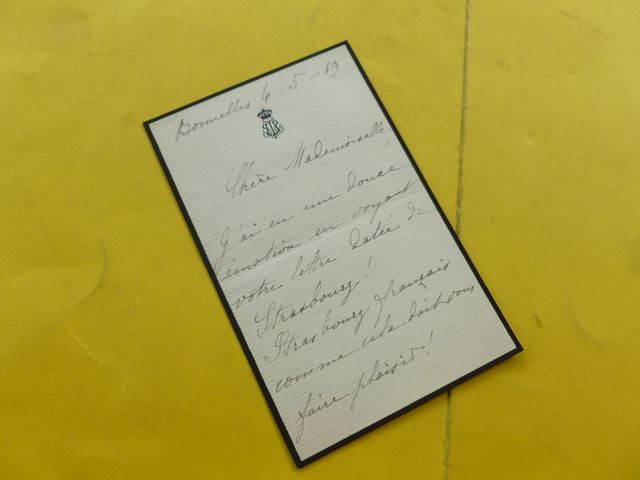 Bonnelles 4-5-19
Chère Mademoiselle,
J'ai eu une douce
émotion en voyant
votre lettre datée de
Strasbourg!
Strasbourg français
comme cela doit vous
faire plaisir!